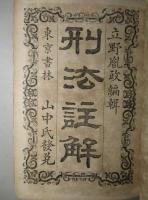 立野胤政編輯
刑法註解
東京書林 山中氏發兌